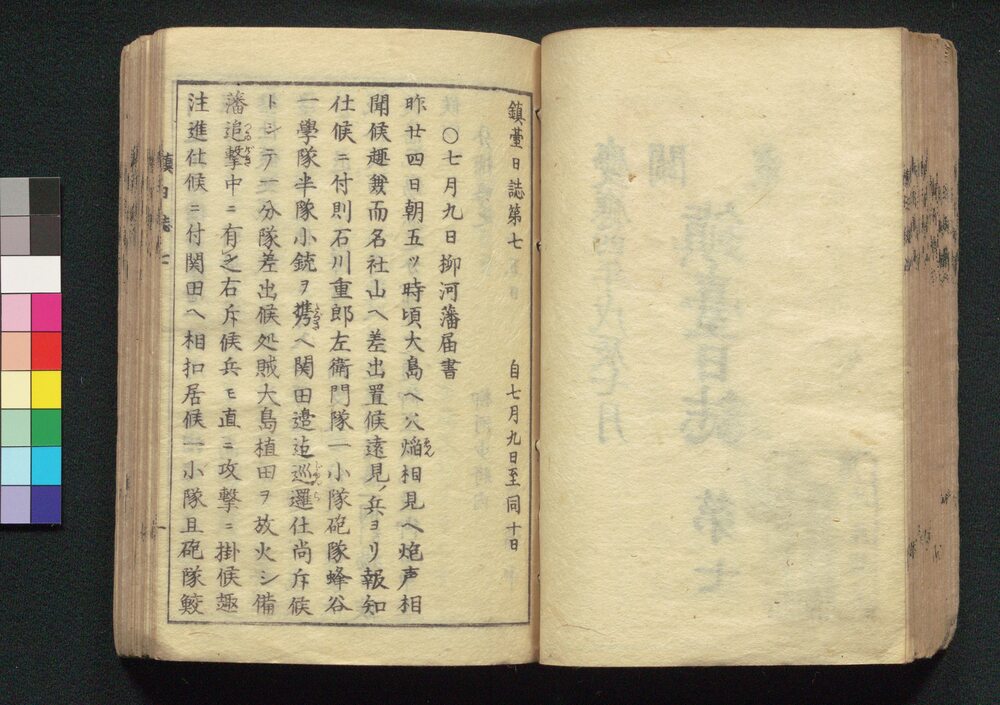 鎮臺日誌第七 自七月九日至同十日
〇七月九日柳河藩届書
昨廿四日朝五ツ時頃大島ヘ火焔相見ヘ炮声相
聞候趣兼而名社山ヘ差出置候遠見ノ兵ヨリ報知
仕候ニ付則石川重郎左衛門隊一小隊砲隊蜂谷
一學隊半隊小銃ヲ携ヘ関田邉迠巡邏仕尚斥候
トシテ分隊差出候処賊大島植田ヲ放火シ備
藩追撃中ニ有之右斥候兵モ直ニ攻撃ニ掛候趣
注進仕候ニ付関田ヘ相扣居候一小隊且砲隊鮫
鎮日誌七